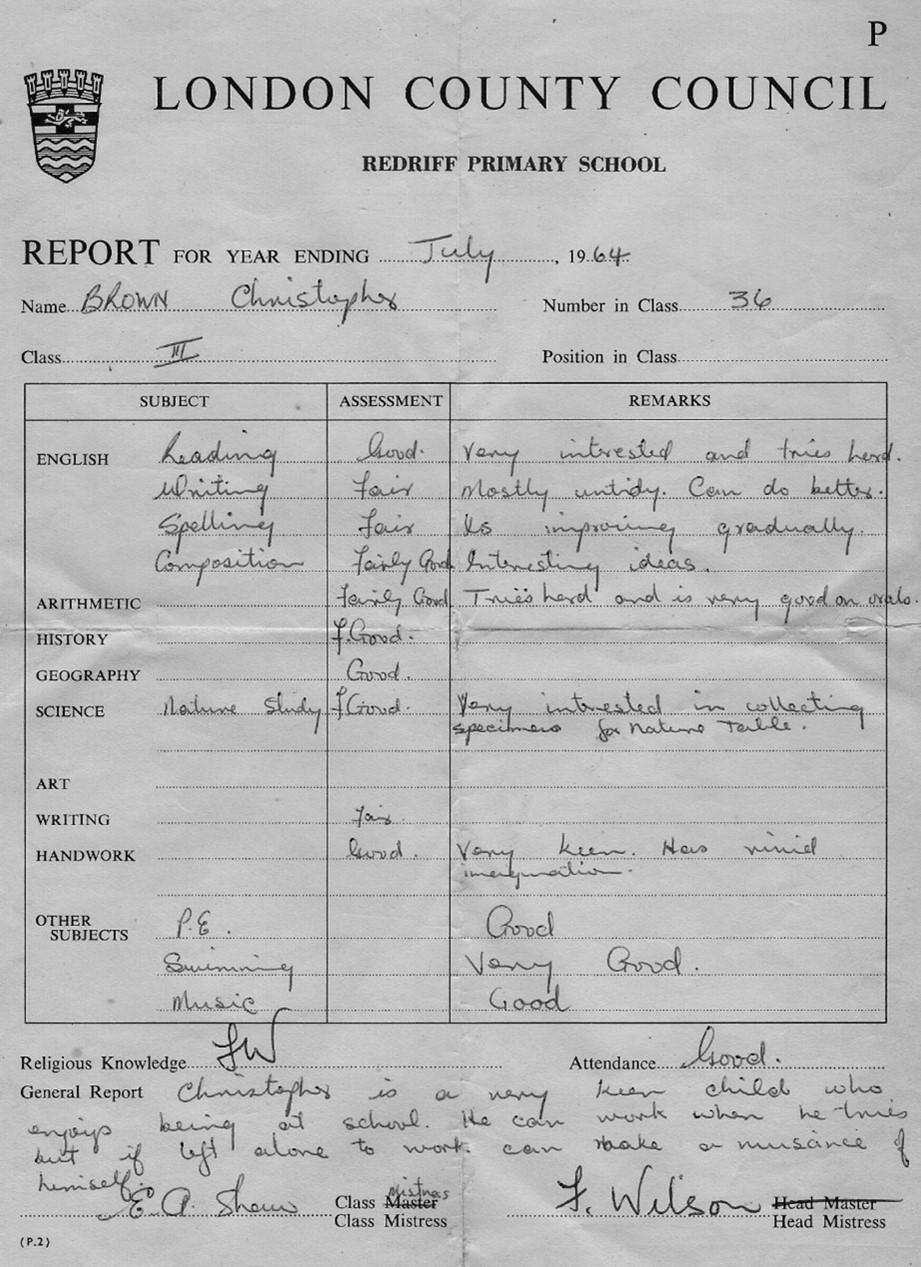 P
LONDON COUNTY COUNCIL
REDRIFF PRIMARY SCHOOL
REPORT FOR YEAR ENDING July, 1964.
Name BROWN Christopher Number in Class 36
Class III Position in Class
SUBJECT ASSESSMENT REMARKS
ENGLISH Reading Good. Very intrested and tries hard.
Writing Fair Mostly untidy. Can do better.
Spelling Fair Is improving gradually.
Composition Fairly Good Interesting ideas.
ARITHMETIC Fairly Good Tries hard and is very good on orals.
HISTORY F. Good.
GEOGRAPHY Good.
SCIENCE Nature Study F. Good. Very intrested in collecting
specimens for Nature Table.
ART
WRITING Fair.
HANDWORK Good. Very keen. Has vivid
imagination.
OTHER SUBJECTS P.E. Good
Swimming Very Good.
Music Good
Religious Knowledge FW Attendance Good.
General Report Christopher is a very keen child who
enjoys being at school. He can work when he tries
but if left alone to work can make a nuisance of
himself.
E. A. Shaw Class Master Mistress F. Wilson Head Master
Class Mistress Head Mistress
(P.2)